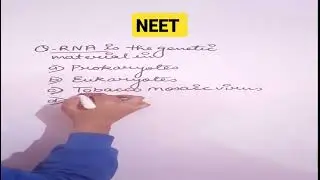 NEET
Q-RNA is the genetic
material in
a) Prokaryotes
b) Eukaryotes
c) Tobacco mosaic virus
d)